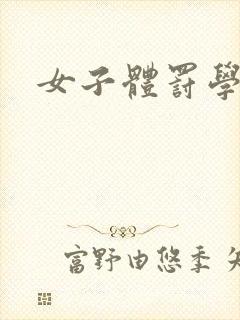 女子體罰學
富野由悠季